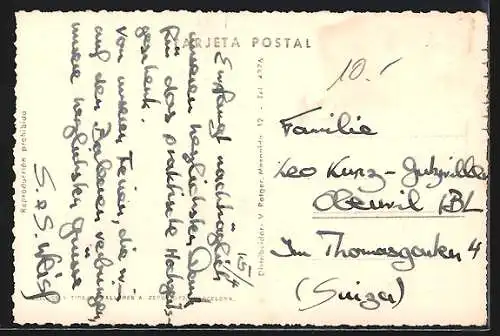 TARJETA POSTAL
10.-
15/4
Empfangt nachträglich
unseren herzlichsten Dank
für das praktische Hochzeits-
geschenk.
Von unseren Ferien, die wir
auf den Balearen verbringen,
unsere herzlichsten Grüsse
S. & S.
Familie
Leo Kunz-Gutzwiller
Oberwil BL
Im Thomasgarten 4
(Suiza)
Reproducción prohibida
Distribuidor: V. Rotger. 12 - Tel. 4276
BARCELONA.